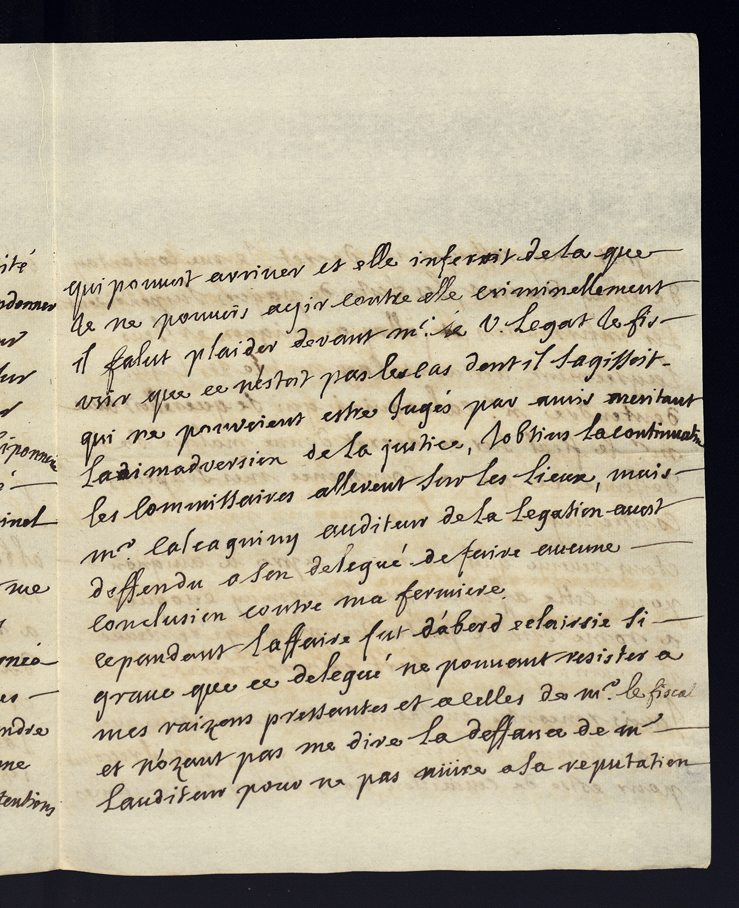 ité
qui pouuoit arriuer et elle inferoit de la que
ndonner
Je ne pouuois agir contre elle criminellement
il falut plaider devant mr. le V. legat le fis
voir que ce nestoit pas les cas dont il sagissoit
qui ne pouvoient estre Jugés par amis meritant
l'adimadversion de la justice, Jobtins la continuation
les commissaires allerent sur les lieux, mais
inel
mr. Calcagniny auditeur de la legation auoit
deffendu a son delegué de faire aucune
me
conclusion contre ma fermiere.
cependant laffaire fut dabord eclaircie si
graue que ce delegué ne pouuant resister a
es
mes raizons pressantes et a celles de mr. le fiscal
ndre
et n'ozant pas me dire la deffance de mr
ne
lauditeur pour ne pas nuire a la reputation
tentions